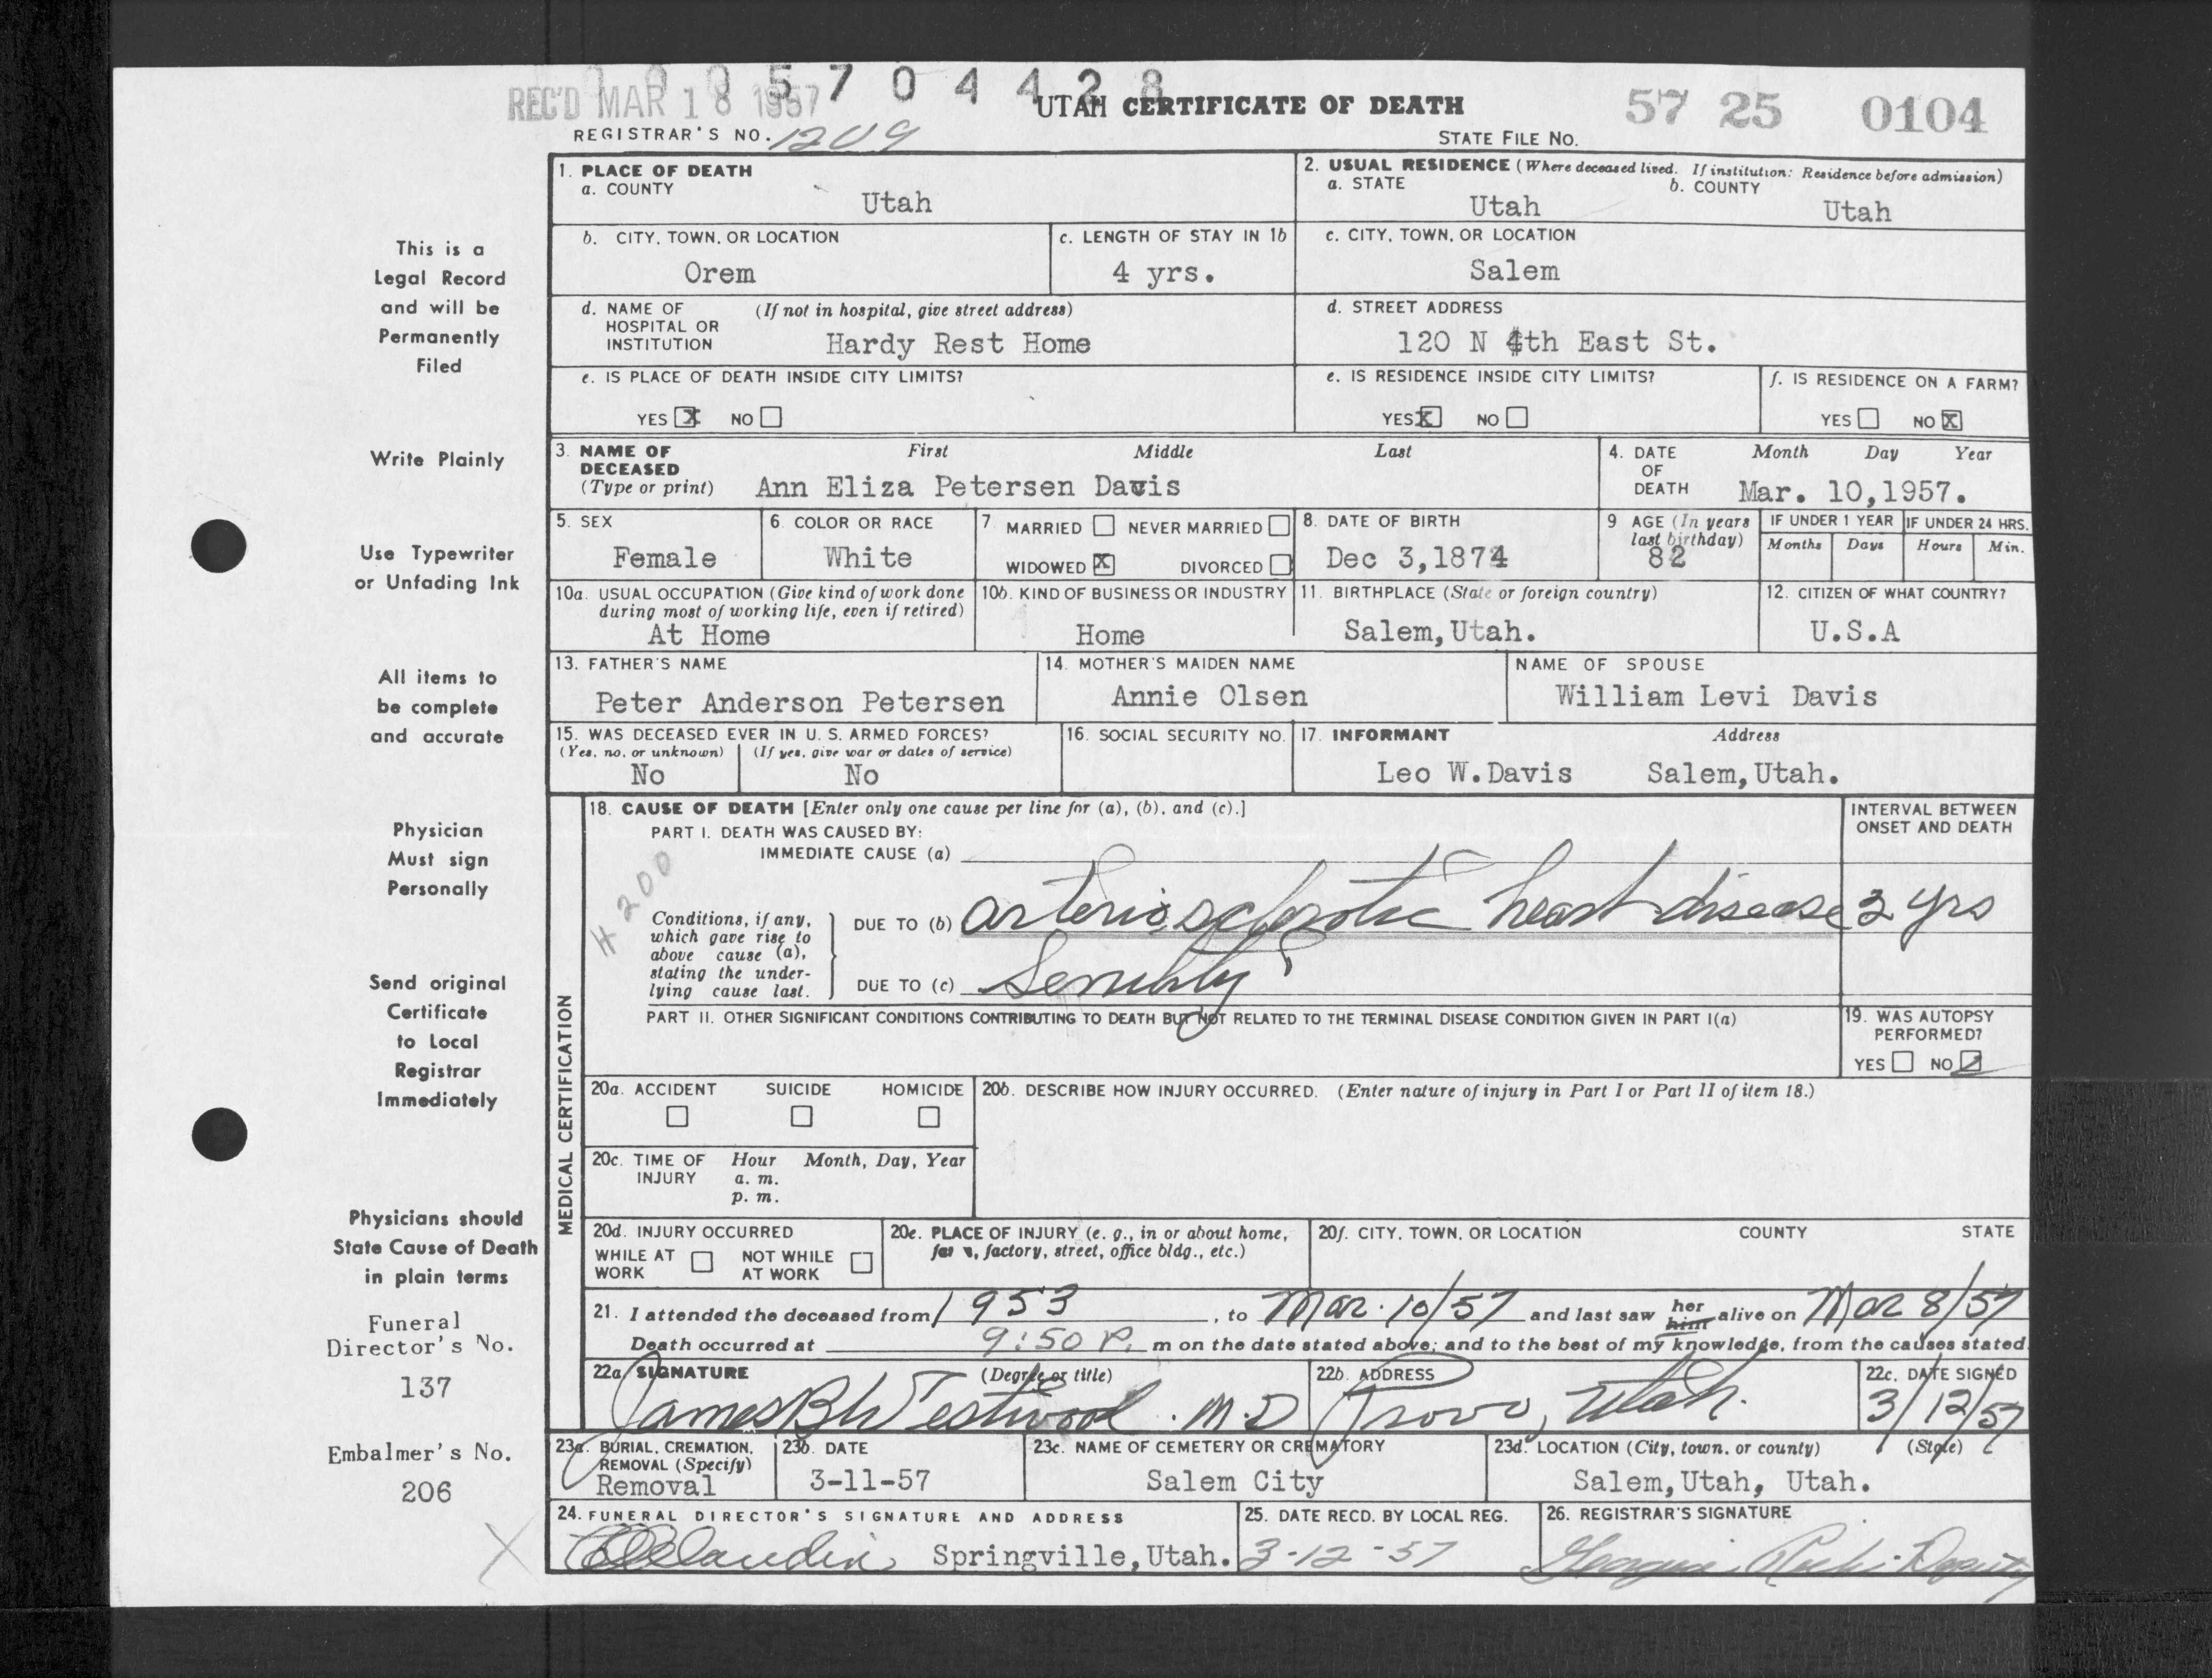 REC'D MAR 18 1957
5 7 0 4 4 2 8
UTAH CERTIFICATE OF DEATH
57 25 0104
REGISTRAR'S NO. 1209
STATE FILE NO.
This is a
Legal Record
and will be
Permanently
Filed
Write Plainly
Use Typewriter
or Unfading Ink
All items to
be complete
and accurate
Physician
Must sign
Personally
Send original
Certificate
to Local
Registrar
Immediately
Physicians should
State Cause of Death
in plain terms
Funeral
Director's No.
137
Embalmer's No.
206
1. PLACE OF DEATH
a. COUNTY
Utah
2. USUAL RESIDENCE (Where deceased lived. If institution: Residence before admission)
a. STATE
Utah
b. COUNTY
Utah
b. CITY, TOWN, OR LOCATION
Orem
c. LENGTH OF STAY IN 1b
4 yrs.
c. CITY, TOWN, OR LOCATION
Salem
d. NAME OF HOSPITAL OR INSTITUTION
(If not in hospital, give street address)
Hardy Rest Home
d. STREET ADDRESS
120 N 4th East St.
e. IS PLACE OF DEATH INSIDE CITY LIMITS?
YES X NO
e. IS RESIDENCE INSIDE CITY LIMITS?
YES X NO
f. IS RESIDENCE ON A FARM?
YES NO X
3. NAME OF DECEASED (Type or print)
First Middle Last
Ann Eliza Petersen Davis
4. DATE OF DEATH
Month Day Year
Mar. 10,1957.
5. SEX
Female
6. COLOR OR RACE
White
7. MARRIED NEVER MARRIED
WIDOWED X DIVORCED
8. DATE OF BIRTH
Dec 3,1874
9 AGE (In years last birthday)
82
IF UNDER 1 YEAR
Months Days
IF UNDER 24 HRS.
Hours Min.
10a. USUAL OCCUPATION (Give kind of work done during most of working life, even if retired)
At Home
10b. KIND OF BUSINESS OR INDUSTRY
Home
11. BIRTHPLACE (State or foreign country)
Salem,Utah.
12. CITIZEN OF WHAT COUNTRY?
U.S.A
13. FATHER'S NAME
Peter Anderson Petersen
14. MOTHER'S MAIDEN NAME
Annie Olsen
NAME OF SPOUSE
William Levi Davis
15. WAS DECEASED EVER IN U. S. ARMED FORCES?
(Yes, no, or unknown) (If yes, give war or dates of service)
No No
16. SOCIAL SECURITY NO.
17. INFORMANT Address
Leo W.Davis Salem,Utah.
MEDICAL CERTIFICATION
18. CAUSE OF DEATH [Enter only one cause per line for (a), (b), and (c).]
INTERVAL BETWEEN ONSET AND DEATH
PART I. DEATH WAS CAUSED BY:
IMMEDIATE CAUSE (a)
4200
Conditions, if any, which gave rise to above cause (a), stating the underlying cause last.
DUE TO (b) arteriosclerotic heart disease 2 yrs
DUE TO (c) Senility
PART II. OTHER SIGNIFICANT CONDITIONS CONTRIBUTING TO DEATH BUT NOT RELATED TO THE TERMINAL DISEASE CONDITION GIVEN IN PART I(a)
19. WAS AUTOPSY PERFORMED?
YES NO
20a. ACCIDENT SUICIDE HOMICIDE
20b. DESCRIBE HOW INJURY OCCURRED. (Enter nature of injury in Part I or Part II of item 18.)
20c. TIME OF INJURY
Hour Month, Day, Year
a. m.
p. m.
20d. INJURY OCCURRED
WHILE AT WORK NOT WHILE AT WORK
20e. PLACE OF INJURY (e. g., in or about home, factory, street, office bldg., etc.)
20f. CITY, TOWN, OR LOCATION COUNTY STATE
21. I attended the deceased from 1953, to Mar. 10/57 and last saw her him alive on Mar 8/57
Death occurred at 9:50 P. m on the date stated above; and to the best of my knowledge, from the causes stated.
22a. SIGNATURE (Degree or title)
James B Westwood . M.D
22b. ADDRESS
Provo, Utah.
22c. DATE SIGNED
3/12/57
23a. BURIAL, CREMATION, REMOVAL (Specify)
Removal
23b. DATE
3-11-57
23c. NAME OF CEMETERY OR CREMATORY
Salem City
23d. LOCATION (City, town, or county) (State)
Salem,Utah, Utah.
24. FUNERAL DIRECTOR'S SIGNATURE AND ADDRESS
Springville,Utah.
25. DATE RECD. BY LOCAL REG.
3-12-57
26. REGISTRAR'S SIGNATURE
Deputy